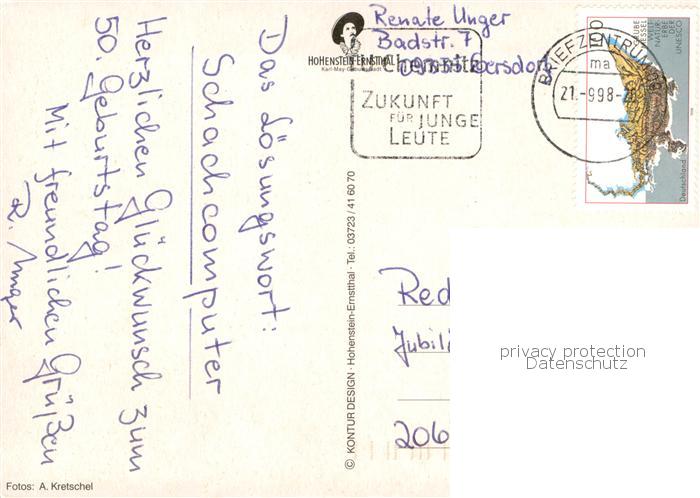 Das Lösungswort:
Schachcomputer
Herzlichen Glückwunsch zum
50 Geburtstag!
Mit freundlichen Grüßen
R. Unger
HOHENSTEIN-ERNSTTHAL
Karl-May-Geburtsstadt
Renate Unger
Badstr. 7
Chemnitz
ZUKUNFT
FÜR JUNGE
LEUTE
BRIEFZENTRUM
ma
21.-9.98-
100
GRUBE
MESSEL
WELT-
NATUR-
ERBE
DER
UNESCO
Deutschland
© KONTUR DESIGN · Hohenstein-Ernstthal · Tel.: 03723 / 41 60 70
Red
Jubil
206
privacy protection
Datenschutz
Fotos: A. Kretschel